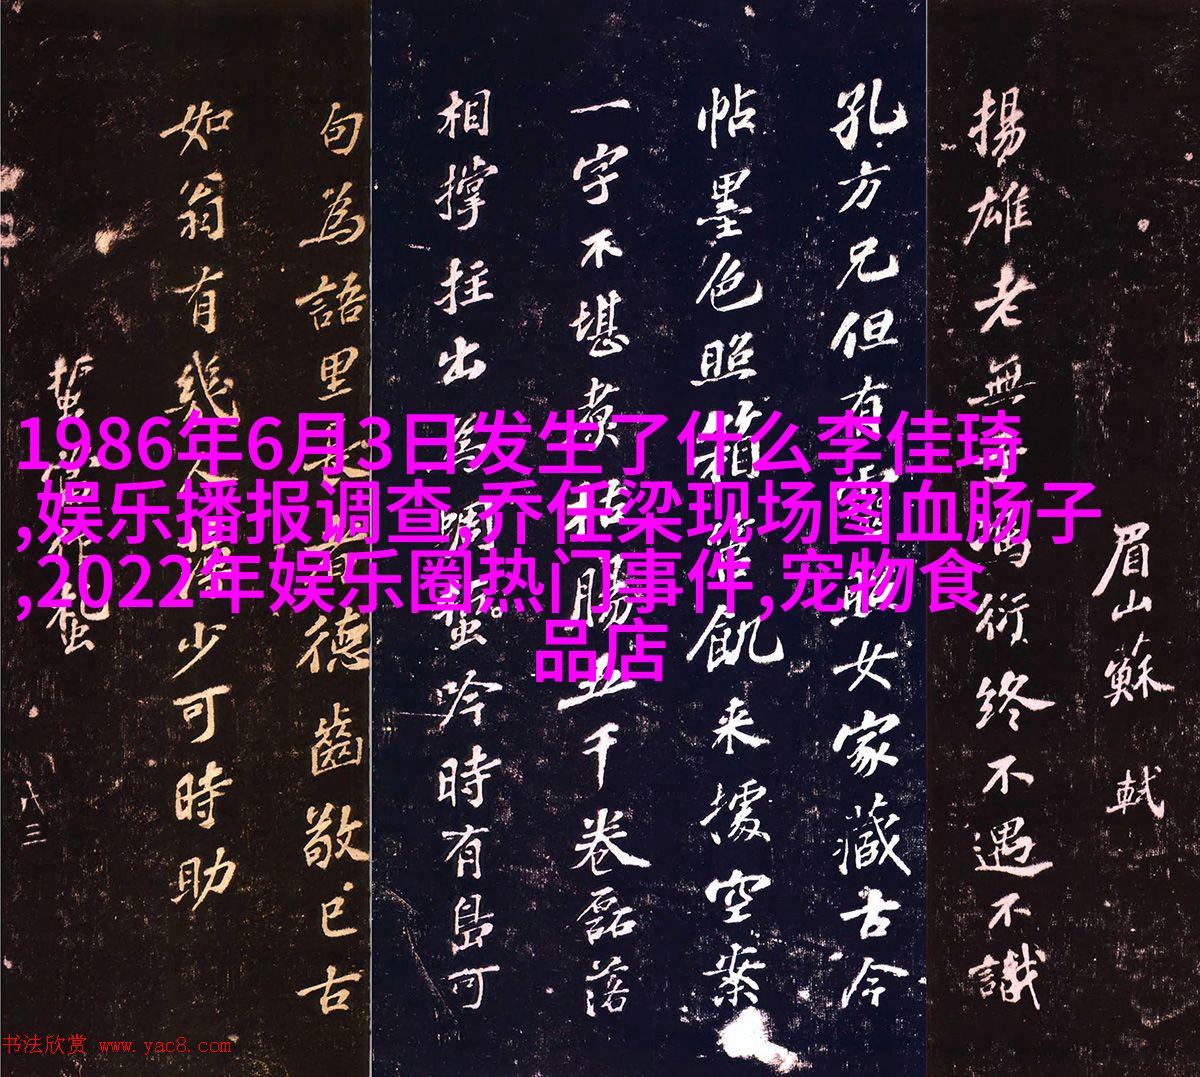 眉山蘇軾
揚雄老無子馮衍終不遇不識
孔方兄但有靈照女家藏古今
帖墨色照箱筥飢来據空案
一字不堪煮枯腸五千卷磊落
相撑拄出為蜩蛩吟時有島可
句為語里長者德齒敬已古
如翁有幾人薄少可時助
八三
1986年6月3日发生了什么李佳琦
,娱乐播报调查,乔任梁现场图血肠子
,2022年娱乐圈热门事件,宠物食
品店
书法欣赏 www.yac8.com